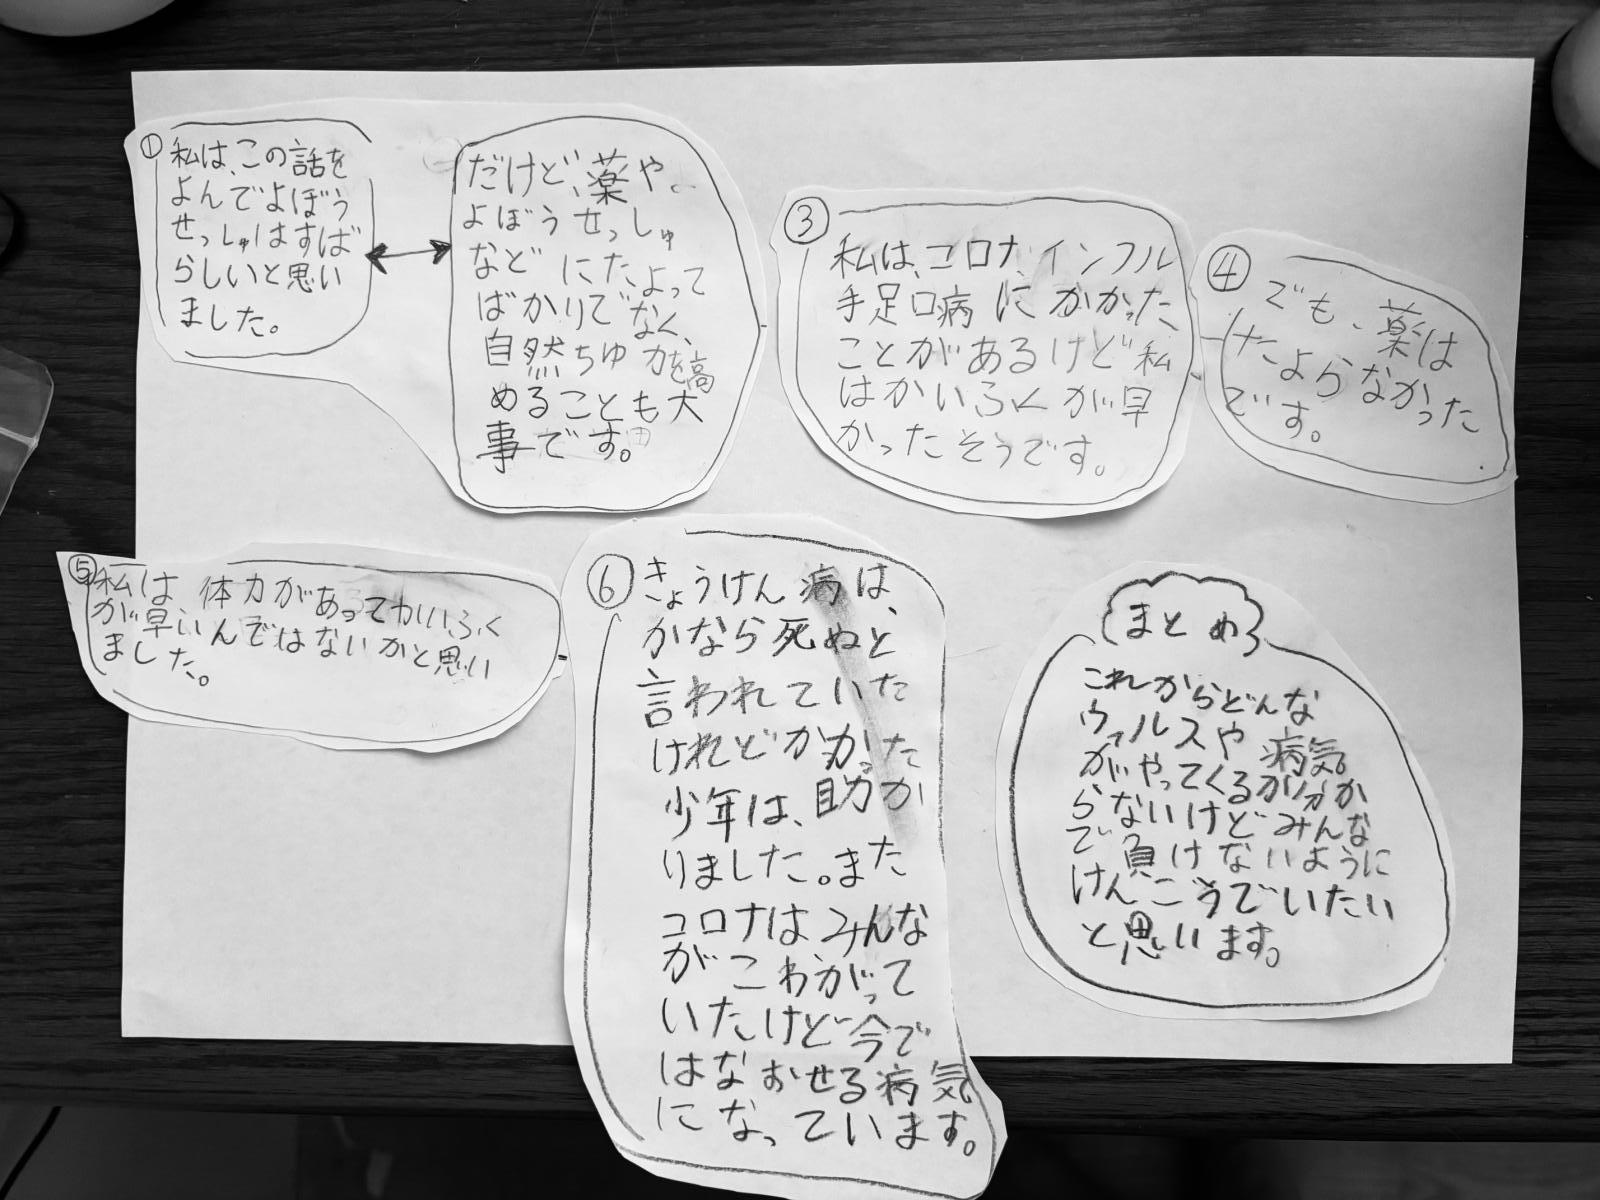 ①
私は、この話を
よんでよぼう
せっしゅはすば
らしいと思い
ました。
だけど、薬や、
よぼうせっしゅ
などにたよって
ばかりでなく、
自然ちゆ力を高
めることも大
事です。
③
私は、コロナ、インフル
手足口病にかかった
ことがあるけど私
はかいふくが早
かったそうです。
④
でも、薬は
たよらなかった
です。
⑤
私は体力があってかいふく
が早いんではないかと思い
ました。
⑥
きょうけん病は、
かなら死ぬと
言われていた
けれどかかった
少年は、助か
りました。また
コロナはみんな
がこわがって
いたけど今で
はなおせる病気
になっています。
まとめ
これからどんな
ウィルスや病気
がやってくるか分か
らないけどみんな
で負けないように
けんこうでいたい
と思います。